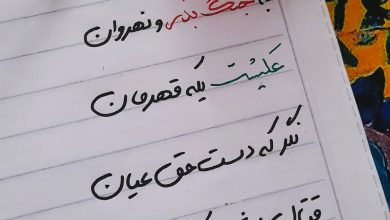 جنگ بدر و نهروان
علیست یکه قهرمان
نگر که دست حق عیان